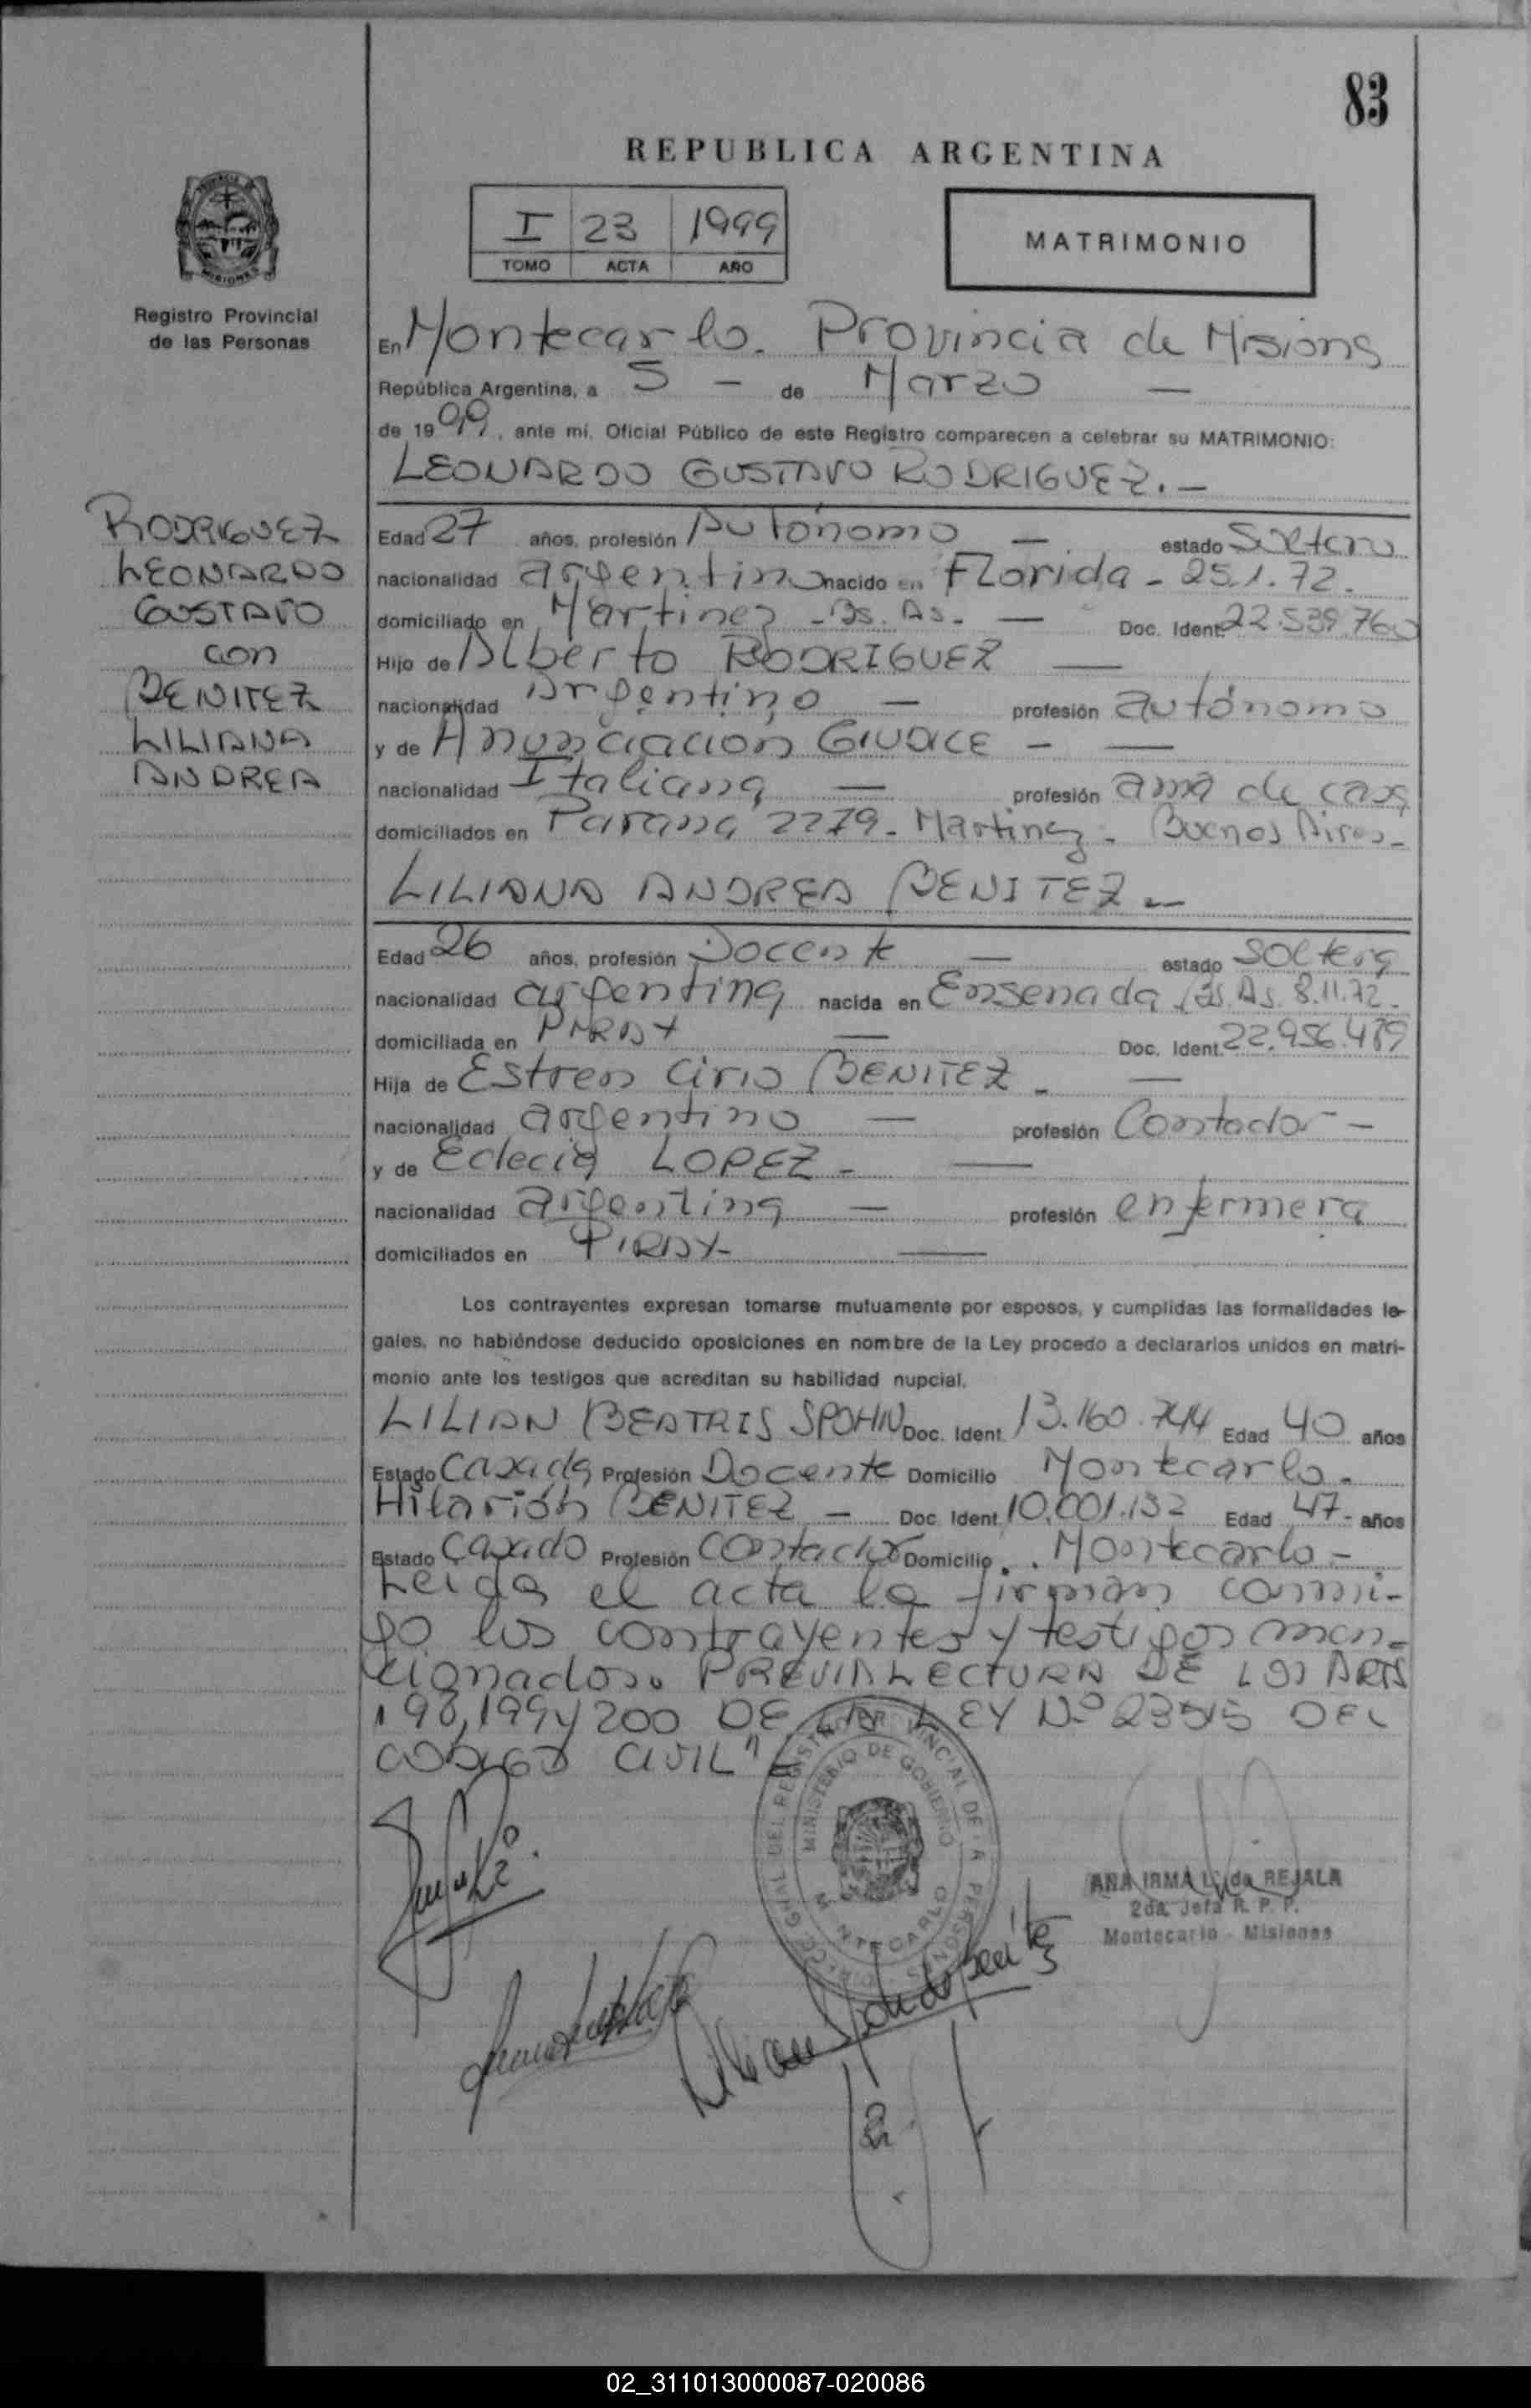 83
REPUBLICA ARGENTINA
I 23 1999
TOMO ACTA AÑO
MATRIMONIO
Registro Provincial
de las Personas
En Montecarlo. Provincia de Misions
República Argentina, a 5 - de Marzo —
de 1999, ante mí, Oficial Público de este Registro comparecen a celebrar su MATRIMONIO:
LEONARDO GUSTAVO RODRIGUEZ. —
RODRIGUEZ
LEONARDO
GUSTAVO
con
BENITEZ
LILIANA
ANDREA
Edad 27 años, profesión Autónomo — estado Soltero
nacionalidad argentino nacido en Florida - 25.1.72.
domiciliado en Martinez - Bs. As. — Doc. Ident. 22.539.760
Hijo de Alberto RODRIGUEZ —
nacionalidad Argentino — profesión autónomo
y de Anunciacion GIUDICE - —
nacionalidad Italiana — profesión ama de casa
domiciliados en Parana 2279 - Martinez - Buenos Aires -
LILIANA ANDREA BENITEZ —
Edad 26 años, profesión Docente — estado Soltera
nacionalidad argentina nacida en Ensenada Bs. As. 8.11.72.
domiciliada en PIRAY — Doc. Ident. 22.956.489
Hija de Cirio BENITEZ - —
nacionalidad argentino — profesión Contador -
y de Eclecia LOPEZ - —
nacionalidad argentina — profesión enfermera
domiciliados en PIRAY- —
Los contrayentes expresan tomarse mutuamente por esposos, y cumplidas las formalidades le-
gales, no habiéndose deducido oposiciones en nombre de la Ley procedo a declararlos unidos en matri-
monio ante los testigos que acreditan su habilidad nupcial.
LILIAN BEATRIS SPOHN Doc. Ident. 13.160.744 Edad 40 años
Estado Casada Profesión Docente Domicilio Montecarlo.
Hilarión BENITEZ - Doc. Ident. 10.001.132 Edad 47- años
Estado Casado Profesión Contador Domicilio Montecarlo -
Leida el acta la firman conmi-
go los contrayentes y testigos men-
cionados. PREVIA LECTURA DE LOS ARTS
198, 199 y 200 DE LA LEY Nº 23515 DEL
CODIGO CIVIL"
MINISTERIO DE GOBIERNO
MONTECARLO
ANA IRMA L. de REJALA
2da. Jefa R. P. P.
Montecarlo - Misiones
02_311013000087-020086